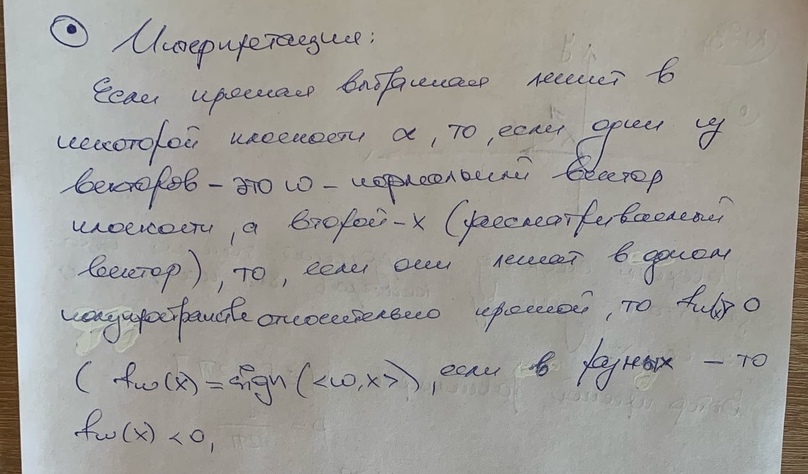 Интерпретация:
Если прямая выбранная лежит в
некоторой плоскости α, то, если один из
векторов – это ω – нормальный вектор
плоскости, а второй – x (рассматриваемый
вектор), то, если они лежат в одном
полупространстве относительно прямой, то fω(x) > 0
( fω(x) = sign (<ω,x>), если в разных – то
fω(x) < 0,